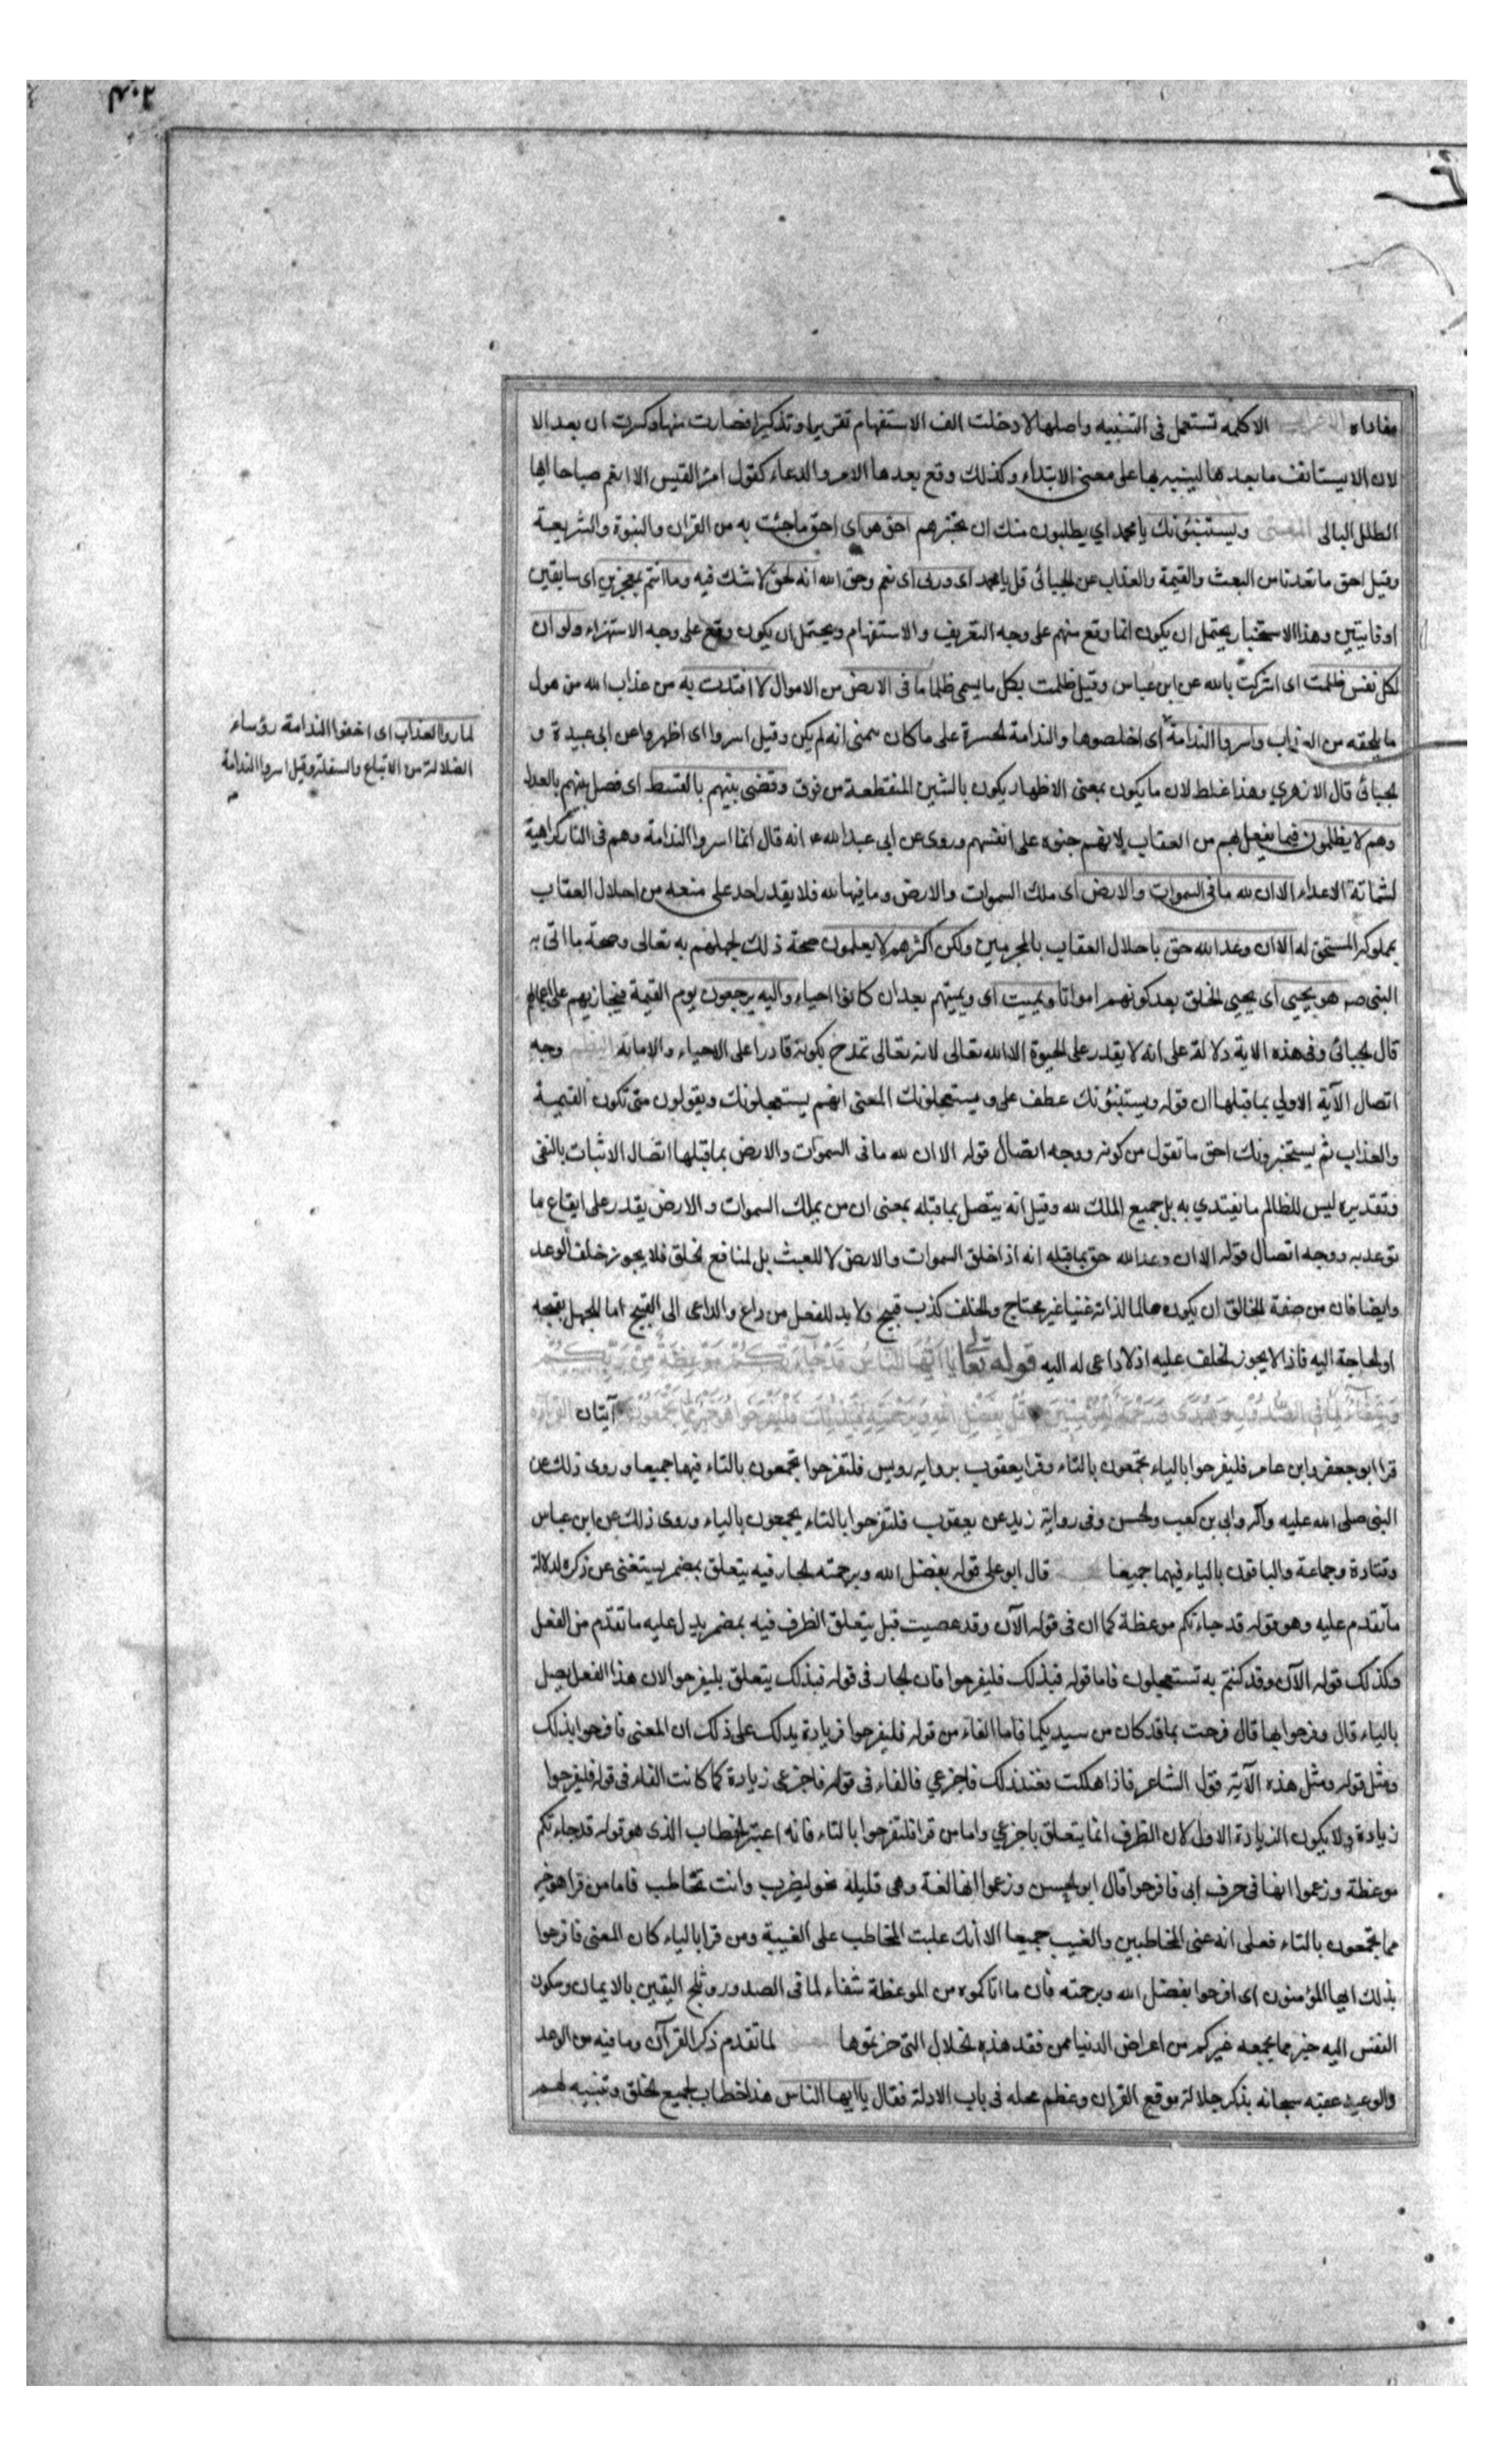 مفاداه الاعراب الا كلمه تستعمل فى التنبيه واصلها لا دخلت الف الاستفهام تقريرا وتذكيرا فصارت تنبها وكسرت ان بعد الا
لان الا يستانف ما بعدها لينبه بها على معنى الابتداء وكذلك وقع بعدها الامر والدعاء كقول امرء القيس الا انعم صباحا ايها
الطلل البالى المعنى ويستنبئونك يا محمد اي يطلبون منك ان تخبرهم احق هو اى احق ما جئت به من القران والنبوة والشريعة
وقيل احق ما تعدنا من البعث والقيمة والعذاب عن الجبائى قل يا محمد اى وربى اى نعم وحق الله انه لحق لا شك فيه وما انتم بمعجزين اى سابقين
او فايتين وهذا الاستخبار يحتمل ان يكون انما وقع منهم على وجه التعريف والاستفهام ويحتمل ان يكون وقع على وجه الاستهزاء ولو ان
لكل نفس ظلمت اى اشركت بالله عن ابن عباس وقيل ظلمت بكل ما يسمى ظلما ما فى الارض من الاموال لا افتدت به من عذاب الله من هول
ما يلحقه من العذاب واسروا الندامة اى اخلصوها والندامة الحسرة على ما كان يتمنى انه لم يكن وقيل اسروا اى اظهروا عن ابى عبيدة و
الجبائى قال الازهري وهذا غلط لان ما يكون بمعنى الاظهار يكون بالشين المنقطعة من فوق وقضى بينهم بالقسط اى فصل بينهم بالعدل
وهم لا يظلمون فيما يفعل بهم من العقاب لانهم جنوه على انفسهم وروى عن ابى عبد الله ع انه قال انما اسروا الندامة وهم فى النار كراهية
لشماتة الاعداء الا ان لله ما فى السموات والارض اى ملك السموات والارض وما فيها لله فلا يقدر احد على منعه من احلال العقاب
بمملوكه المستحق له الا ان وعد الله حق باحلال العقاب بالمجرمين ولكن اكثرهم لا يعلمون صحة ذلك لجهلهم به تعالى وصحة ما اتى به
النبى ص هو يحيى اى يحيى الخلق بعد كونهم امواتا ويميت اى ويميتهم بعد ان كانوا احياء واليه يرجعون يوم القيمة فيجازيهم على اعمالهم
قال الجبائى وفى هذه الاية دلالة على انه لا يقدر على الحيوة الا الله تعالى لانه تعالى تمدح بكونه قادرا على الاحياء والاماتة النظم وجه
اتصال الآية الاولي بما قبلها ان قوله ويستنبئونك عطف على ويستعجلونك المعنى انهم يستعجلونك ويقولون متى تكون القيمة
والعذاب ثم يستخبرونك احق ما تقول من كونه ووجه اتصال قوله الا ان لله ما فى السموات والارض بما قبلها اتصال الاثبات بالنفى
وتقديره ليس للظالم ما يفتدي به بل جميع الملك لله وقيل انه يتصل بما قبله بمعنى ان من يملك السموات والارض يقدر على ايقاع ما
توعد به ووجه اتصال قوله الا ان وعد الله حق بما قبله انه اذ اخلق السموات والارض لا للعبث بل لمنافع الخلق فلا يجوز خلف الوعد
وايضا فان من صفة الخالق ان يكون عالما لذاته غنيا غير محتاج والخلف كذب قبيح ولا بد للفعل من داع والداعى الى القبيح اما الجهل بقبحه
او الحاجة اليه فاذا لا يجوز الخلف عليه اذ لا داعى له اليه قوله تعالى يا ايها الناس قد جاءتكم موعظة من ربكم
وشفاء لما فى الصدور وهدى ورحمة للمؤمنين قل بفضل الله وبرحمته فبذلك فليفرحوا هو خير مما يجمعون آيتان القراءة
قرا ابو جعفر وابن عامر فليفرحوا بالياء تجمعون بالتاء وقرا يعقوب بروايه رويس فلتفرحوا تجمعون بالتاء فيهما جميعا وروى ذلك عن
النبى صلى الله عليه وآله وابى بن كعب والحسن وفى رواية زيد عن يعقوب فلتفرحوا بالتاء يجمعون بالياء وروى ذلك عن ابن عباس
وقتادة وجماعة والباقون بالياء فيهما جميعا الحجة قال ابو على قوله بفضل الله وبرحمته الجار فيه يتعلق بمضمر يستغنى عن ذكره لدلالة
ما تقدم عليه وهو قوله قد جاءتكم موعظة كما ان فى قوله الآن وقد عصيت قبل يتعلق الظرف فيه بمضمر يدل عليه ما تقدم من الفعل
وكذلك قوله الآن وقد كنتم به تستعجلون فاما قوله فبذلك فليفرحوا فان الجار فى قوله فبذلك يتعلق بليفرحوا لان هذا الفعل يصل
بالياء قال وفرحوا بها قال فرحت بما قد كان من سيديكما فاما الفاء من قوله فليفرحوا فزيادة يدلك على ذلك ان المعنى فافرحوا بذلك
ومثل قوله ومثل هذه الآية قول الشاعر فاذا هلكت فعند ذلك فاجزعي فالفاء فى قوله فاجزعى زيادة كما كانت الفاء فى قوله فليفرحوا
زيادة ولا يكون الزيادة الاولى لان الظرف انما يتعلق باجزعي واما من قرا فلتفرحوا بالتاء فانه اعتبر الخطاب الذى هو قوله قد جاءتكم
موعظة وزعموا انها فى حرف ابى فافرحوا قال ابو الحسن وزعموا انها لغة وهى قليلة نحو لتضرب وانت تخاطب فاما من قرا هو خير
مما تجمعون بالتاء فعلى انه عنى المخاطبين والغيب جميعا الا انك غلبت المخاطب على الغيبة ومن قرا بالياء كان المعنى فافرحوا
بذلك ايها المؤمنون اى افرحوا بفضل الله وبرحمته فان ما اتاكموه من الموعظة شفاء لما فى الصدور وثلج اليقين بالايمان وسكون
النفس اليه خير مما يجمعه غيركم من اعراض الدنيا ممن فقد هذه الخلال التى حزتموها المعنى لما تقدم ذكر القرآن وما فيه من الوعد
والوعيد عقبه سبحانه بذكر جلالة موقع القران وعظم محله فى باب الادلة فقال يا ايها الناس هذا خطاب لجميع الخلق وتنبيه لهم
لما روا العذاب اى اخفوا الندامة رؤساء
الضلالة من الاتباع والسفلة وقيل اسروا الندامة